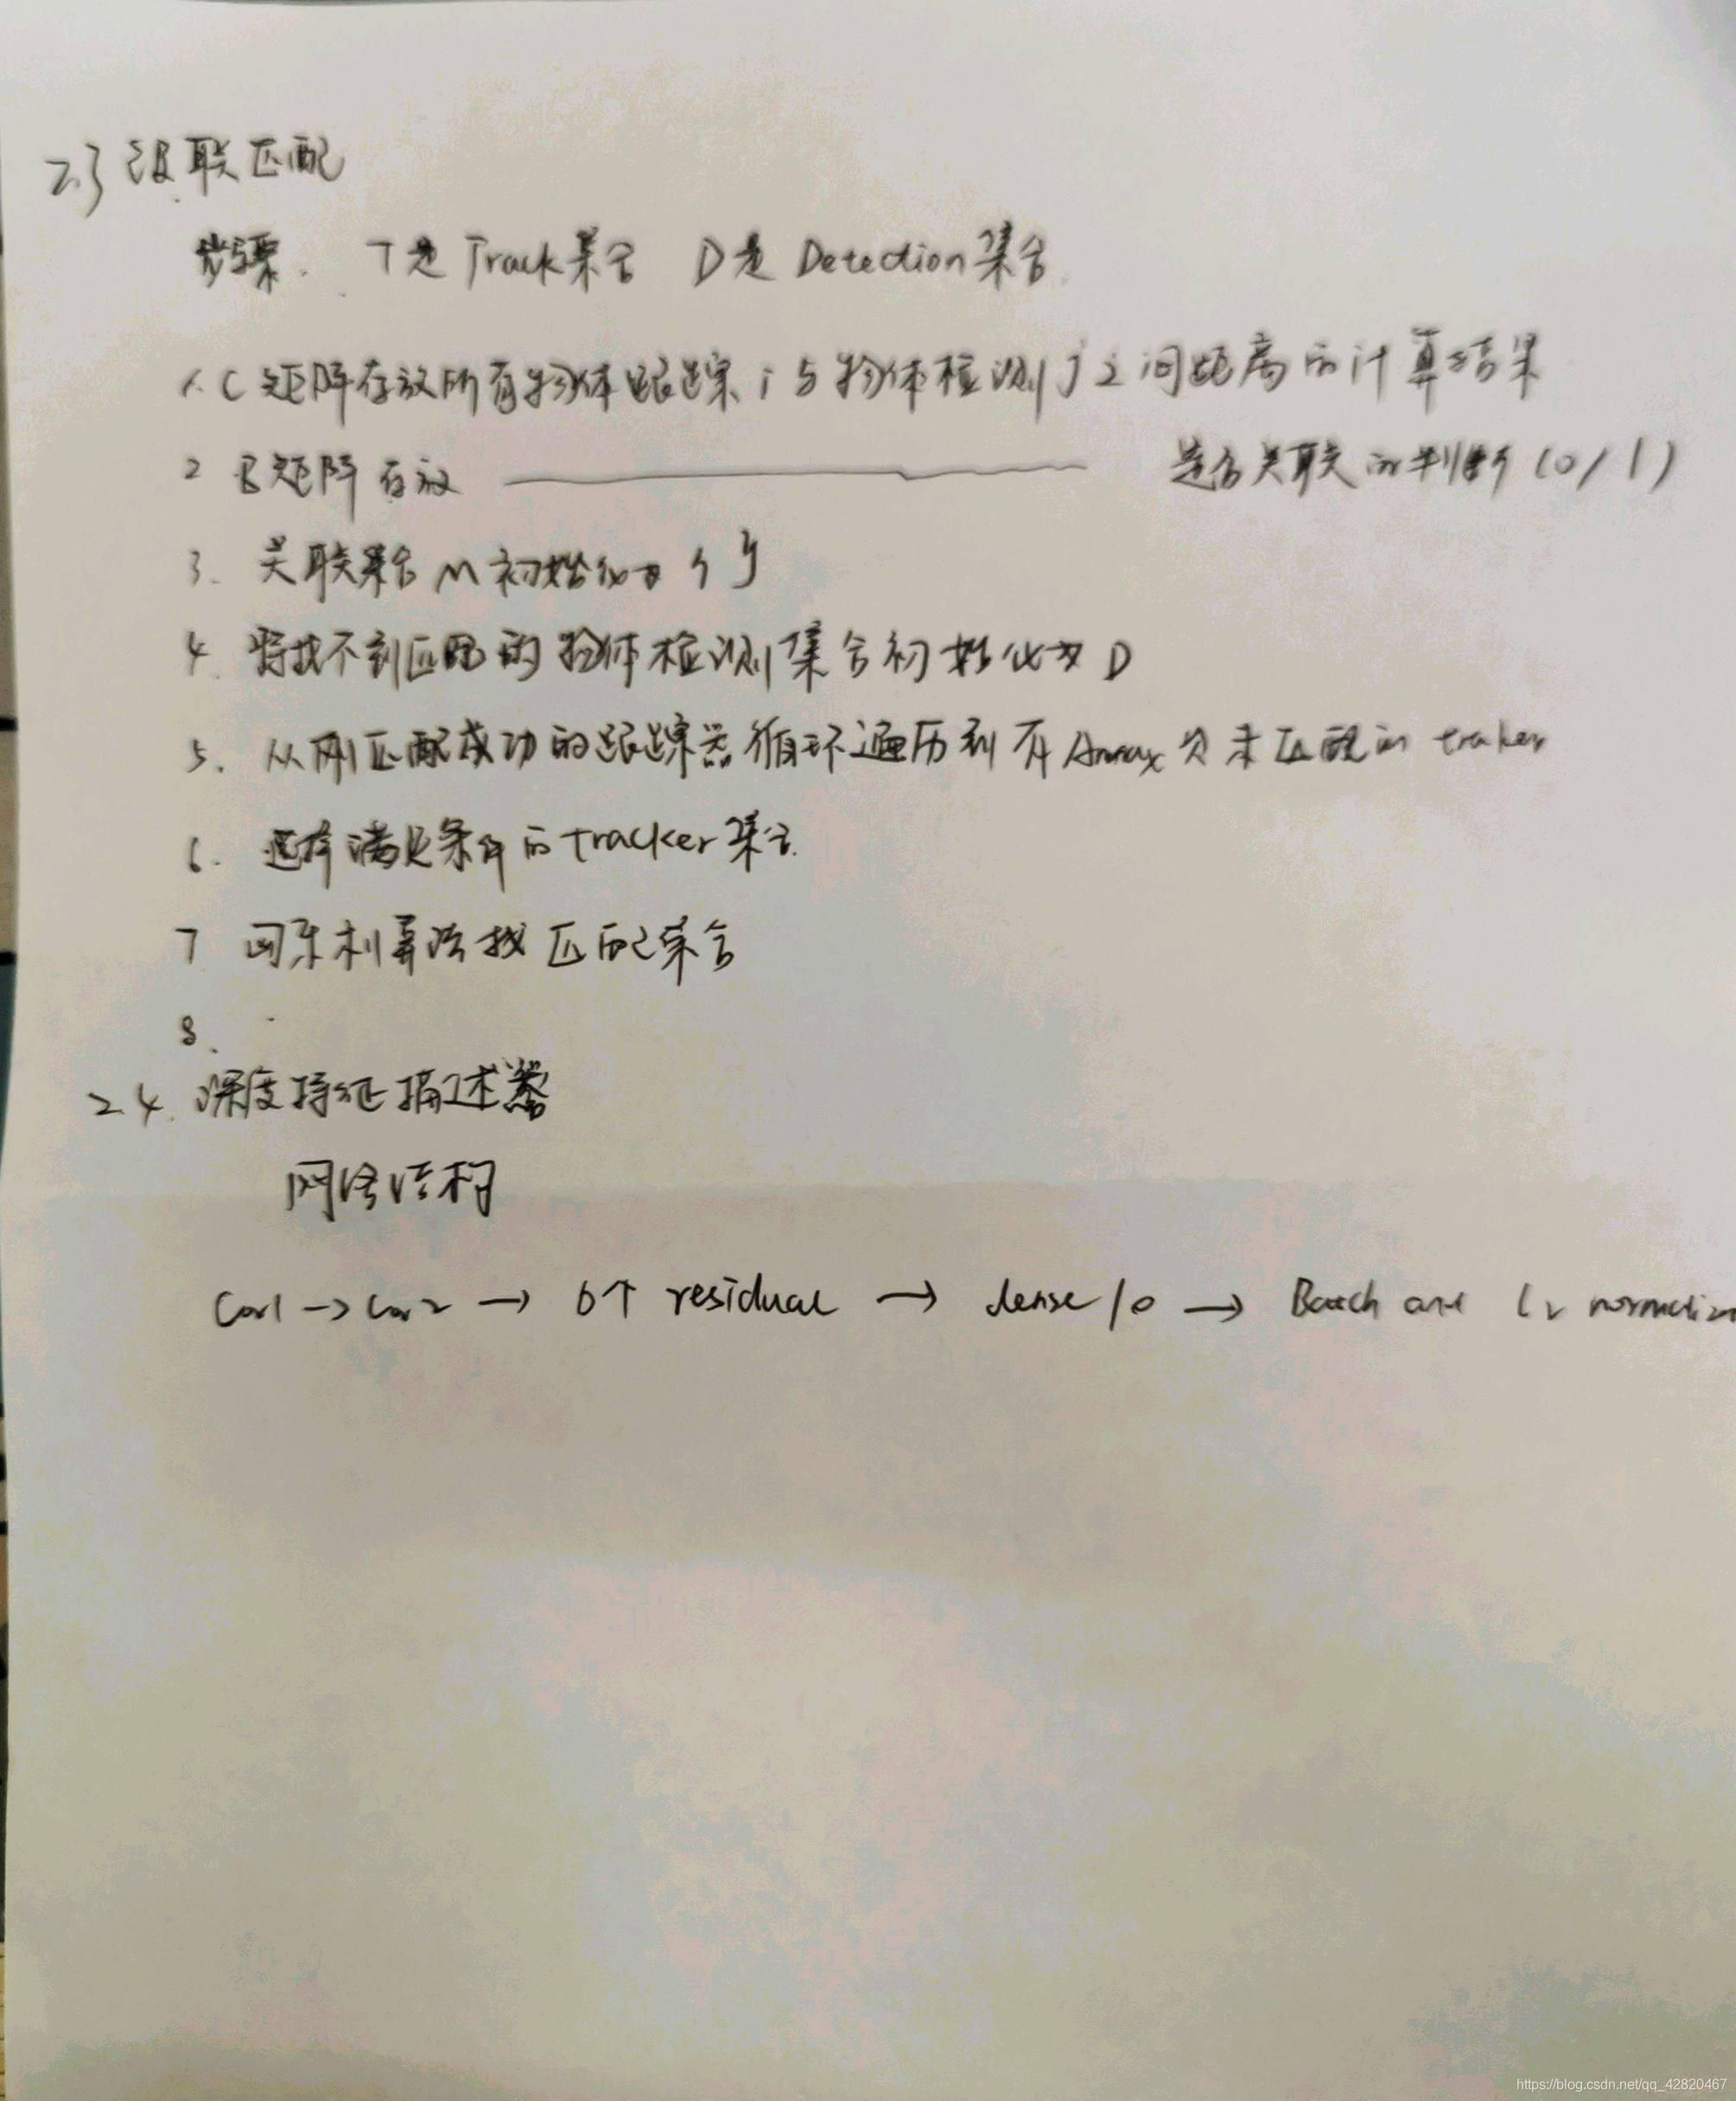 2.3 级联匹配
步骤. T是Track集合 D是Detection集合
1. C矩阵存放所有物体跟踪i与物体检测j之间距离的计算结果
2 B矩阵存放 —— 是否关联的判断(0/1)
3. 关联集合M初始化为{}
4. 将找不到匹配的物体检测集合初始化为D
5. 从刚匹配成功的跟踪器循环遍历到有Amax次未匹配的traker
6. 选择满足条件的tracker集合.
7 匈牙利算法找匹配集合
8.
2.4. 深度特征描述器
网络结构
Con1 → Con2 → 6个 residual → dense10 → Batch and l2 normaliz
https://blog.csdn.net/qq_42820467